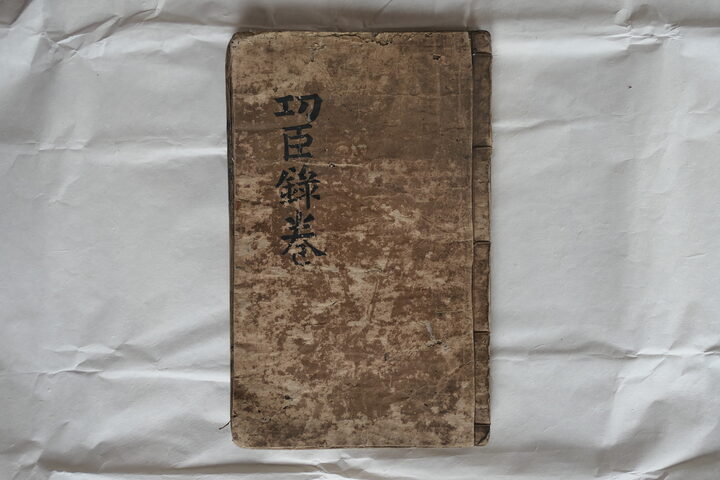 功臣錄卷